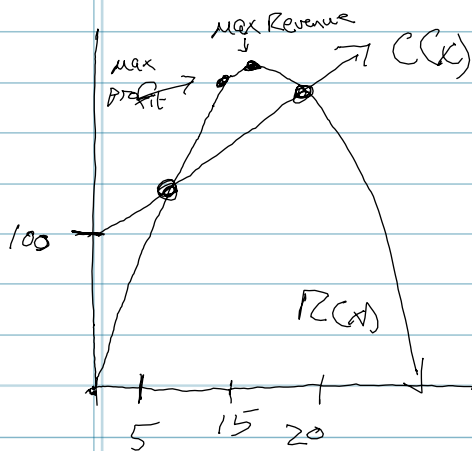 Max Revenue
Max
Profit
C(x)
100
R(x)
5
15
20